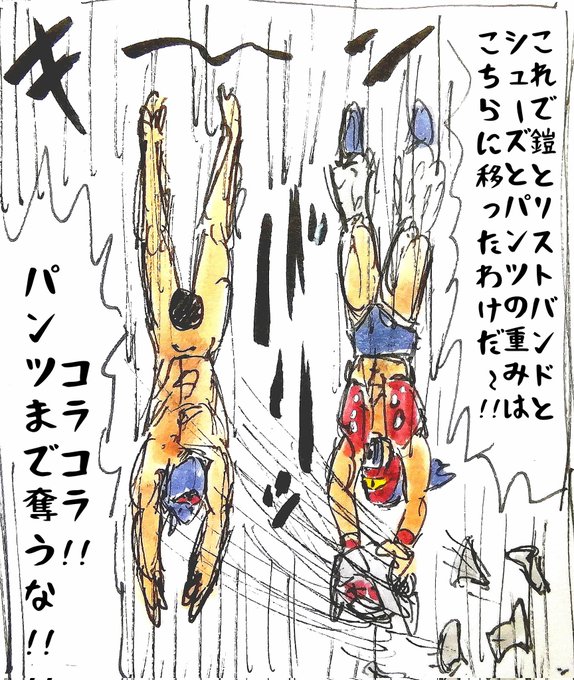 これで鎧とリストバンドと
シューズとパンツの重みは
こちらに移ったわけだ〜!!
キーン
ガバッ
コラコラ!!
パンツまで奪うな!!